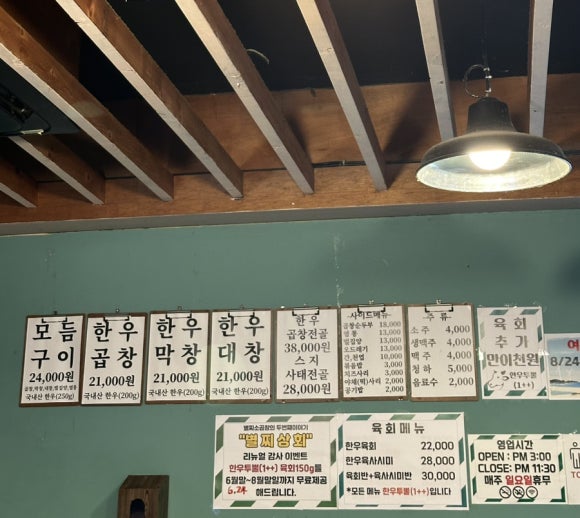 모듬
구이
24,000원
곱창,막창,대창,벌집양,염통
국내산 한우(250g)
한우
곱창
21,000원
국내산 한우(200g)
한우
막창
21,000원
국내산 한우(200g)
한우
대창
21,000원
국내산 한우(200g)
한우
곱창전골
38,000원
스지
사태전골
28,000원
사이드메뉴
곱창순두부 18,000
염통 13,000
벌집양 13,000
오드레기 13,000
간,천엽 10,000
볶음밥 3,000
치즈사리 3,000
야채(떡)사리 2,000
공기밥 2,000
주류
소주 4,000
생맥주 4,000
맥주 4,000
청하 5,000
음료수 2,000
육회
추가
만이천원
한우투뿔
(1++)
여
8/24
별찌소곱창의 두번째이야기
"별찌상회"
리뉴얼 감사 이벤트
한우투뿔(1++) 육회150g를
6월말~8월말일까지 무료제공
6.24 해드립니다.
육회메뉴
한우육회 22,000
한우육사시미 28,000
육회반+육사시미반 30,000
*모든 메뉴 한우투뿔(1++)입니다
영업시간
OPEN : PM 3:00
CLOSE: PM 11:30
매주 일요일휴무
TO